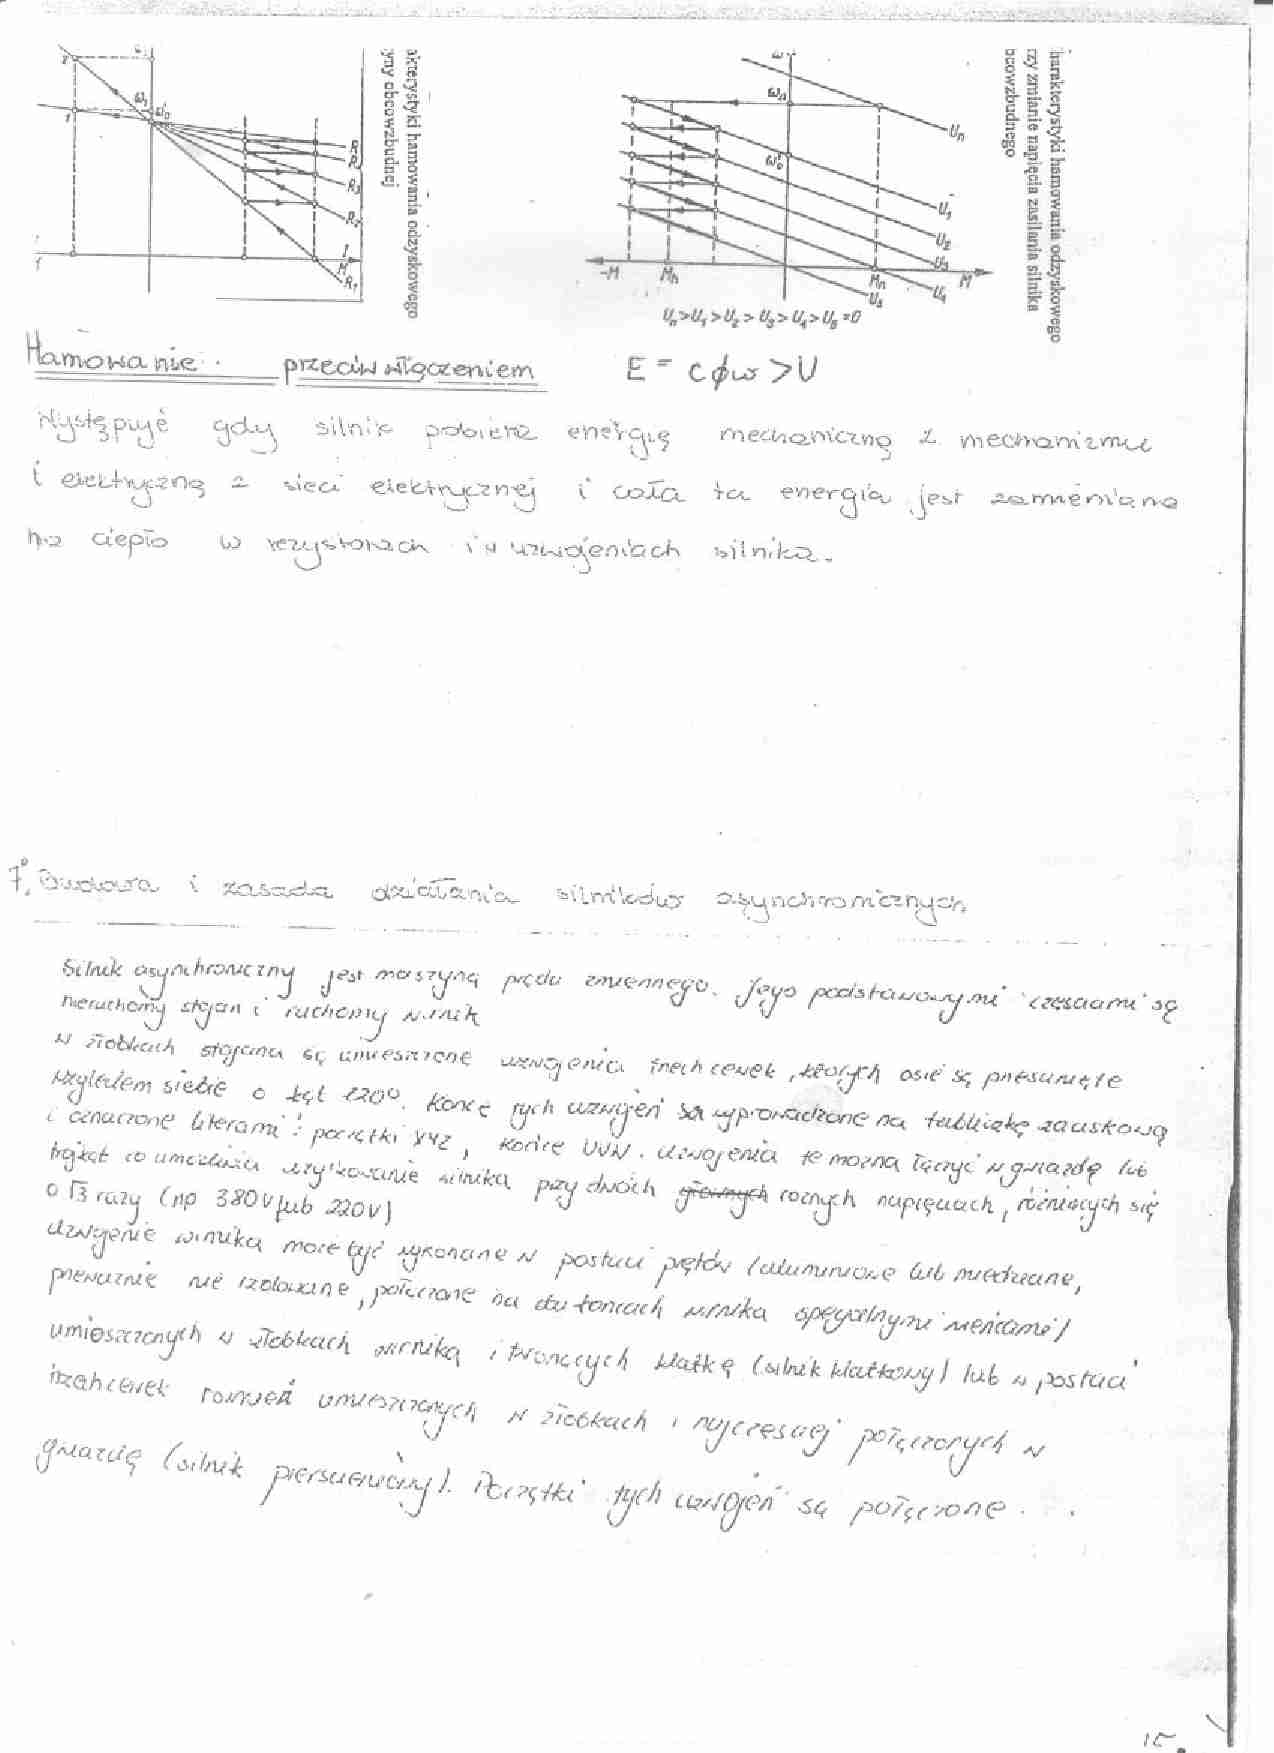 akterystyki hamowania odzyskowego
yny obcowzbudnej
ω₀
R₃
R₂
I
M
R₁
harakterystyki hamowania odzyskowego
rzy zmianie napięcia zasilania silnika
bcowzbudnego
ω
ωₙ
ω₀
Uₙ
U₁
U₂
U₃
U₄
U₅
-M
Mₕ
Mₙ
M
Uₙ>U₁>U₂>U₃>U₄>U₅=0
Hamowanie przeciwwłączeniem E = cϕω >U
Występuje gdy silnik pobiera energię mechaniczną z mechanizmu
i elektryczną z sieci elektrycznej i cała ta energia jest zamieniana
na ciepło w rezystorach i w uzwojeniach silnika.
7°. Budowa i zasada działania silników asynchronicznych
Silnik asynchroniczny jest maszyną prądu zmiennego. Jego podstawowymi częściami są
nieruchomy stojan i ruchomy wirnik
W żłobkach stojana są umieszczone uzwojenia trzech cewek, których osie są przesunięte
względem siebie o kąt 120°. Końce tych uzwojeń są wyprowadzone na tabliczkę zaciskową
i oznaczone literami: początki XYZ, końce UVW. Uzwojenia te można łączyć w gwiazdę lub
trójkąt co umożliwia użytkowanie silnika przy dwóch różnych napięciach, różniących się
o √3 razy (np 380V lub 220V)
Uzwojenie wirnika może być wykonane w postaci prętów (aluminiowe lub miedziane,
przeważnie nie izolowane, połączone na obu końcach wirnika specjalnymi wieńcami)
umieszczonych w żłobkach wirnika i tworzących klatkę (silnik klatkowy) lub w postaci
trzech cewek również umieszczonych w żłobkach i najczęściej połączonych w
gwiazdę (silnik pierścieniowy). Początki tych uzwojeń są połączone .
15.